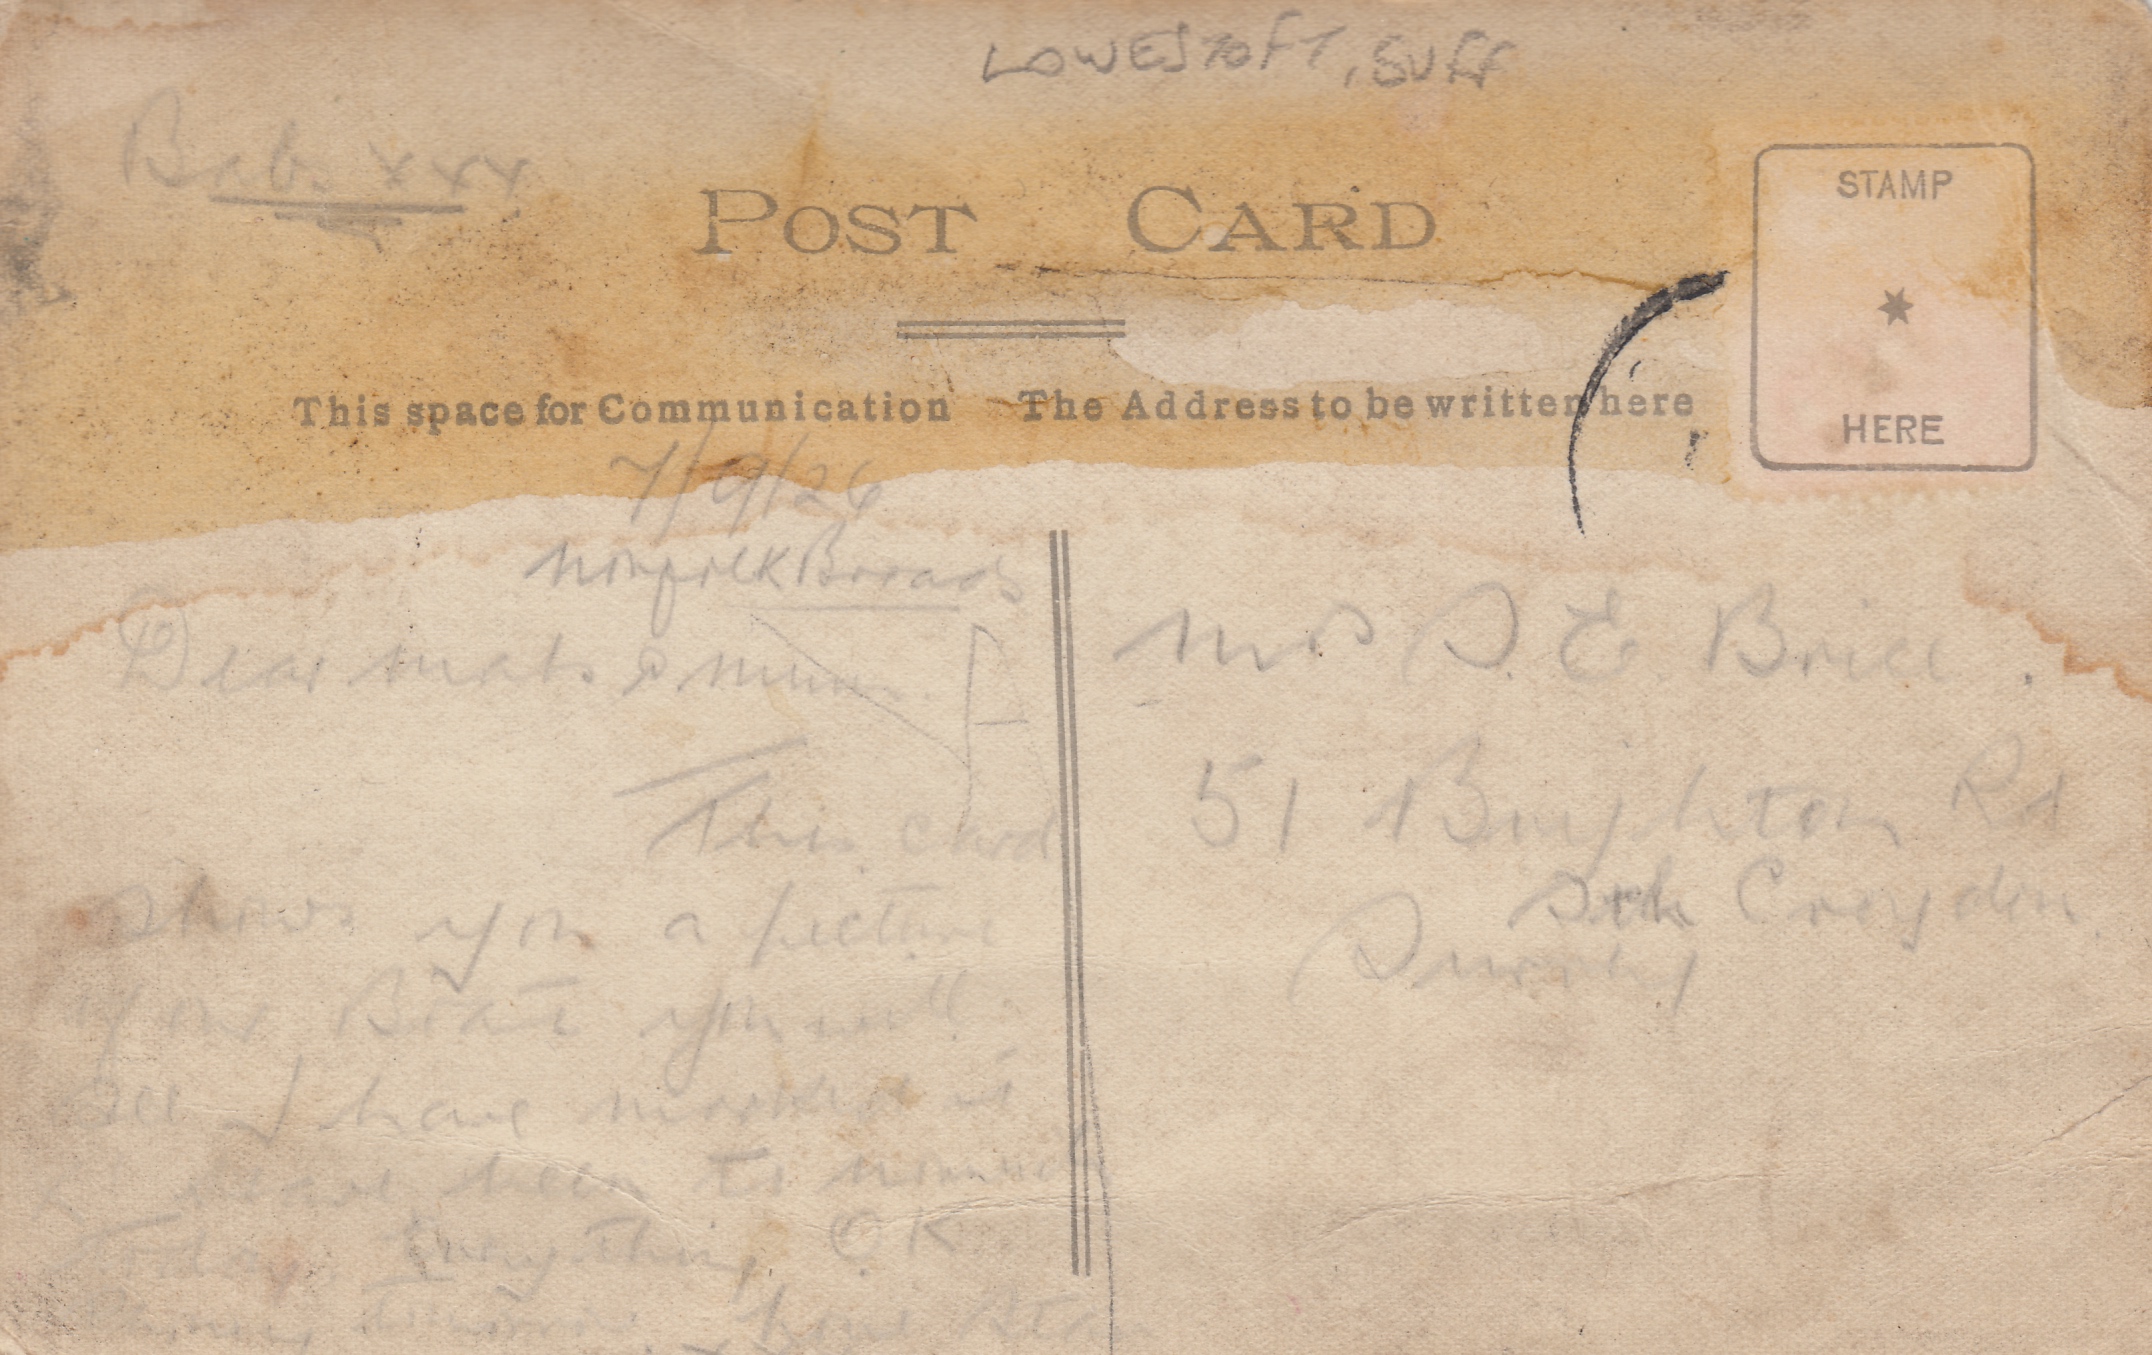 LOWESTOFT, SUFF
Bab. xxx
POST CARD
STAMP
HERE
This space for Communication
The Address to be written here
7/9/26
Norfolk Broads
Dear & Mum.
This card
shows you a picture
of our Boat you will
see I have marked it
have been to
today. Everything O.K
home
Mrs S. E. Brice.
51 Brighton Rd
Sth Croydon.
Surrey